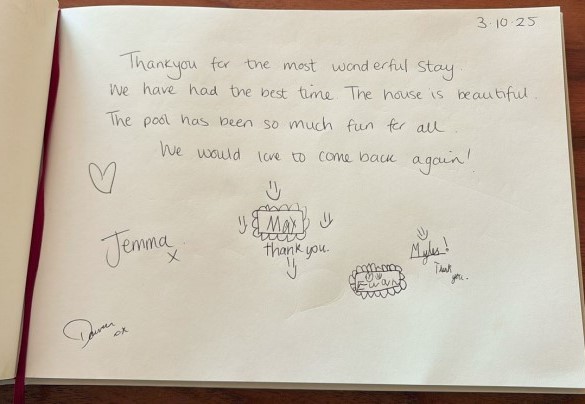 3·10·25
Thankyou for the most wonderful stay.
We have had the best time The house is beautiful.
The pool has been so much fun for all.
We would love to come back again!
Jemma x
Max
thank you.
Myles!
Thank you.
Ewan